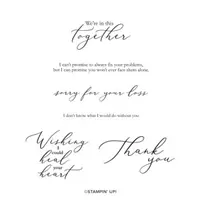 We're in this
together
I can't promise to always fix your problems,
but I can promise you won't ever face them alone.
sorry for your loss
I don't know what I would do without you.
Wishing
I could
heal
your
heart
Thank
you
©STAMPIN' UP!